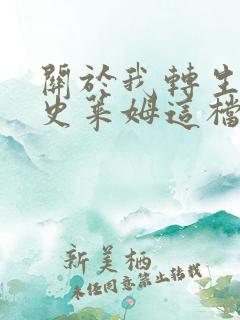 關於我轉生
史萊姆這檔
新美栖
未任同意禁止轉載